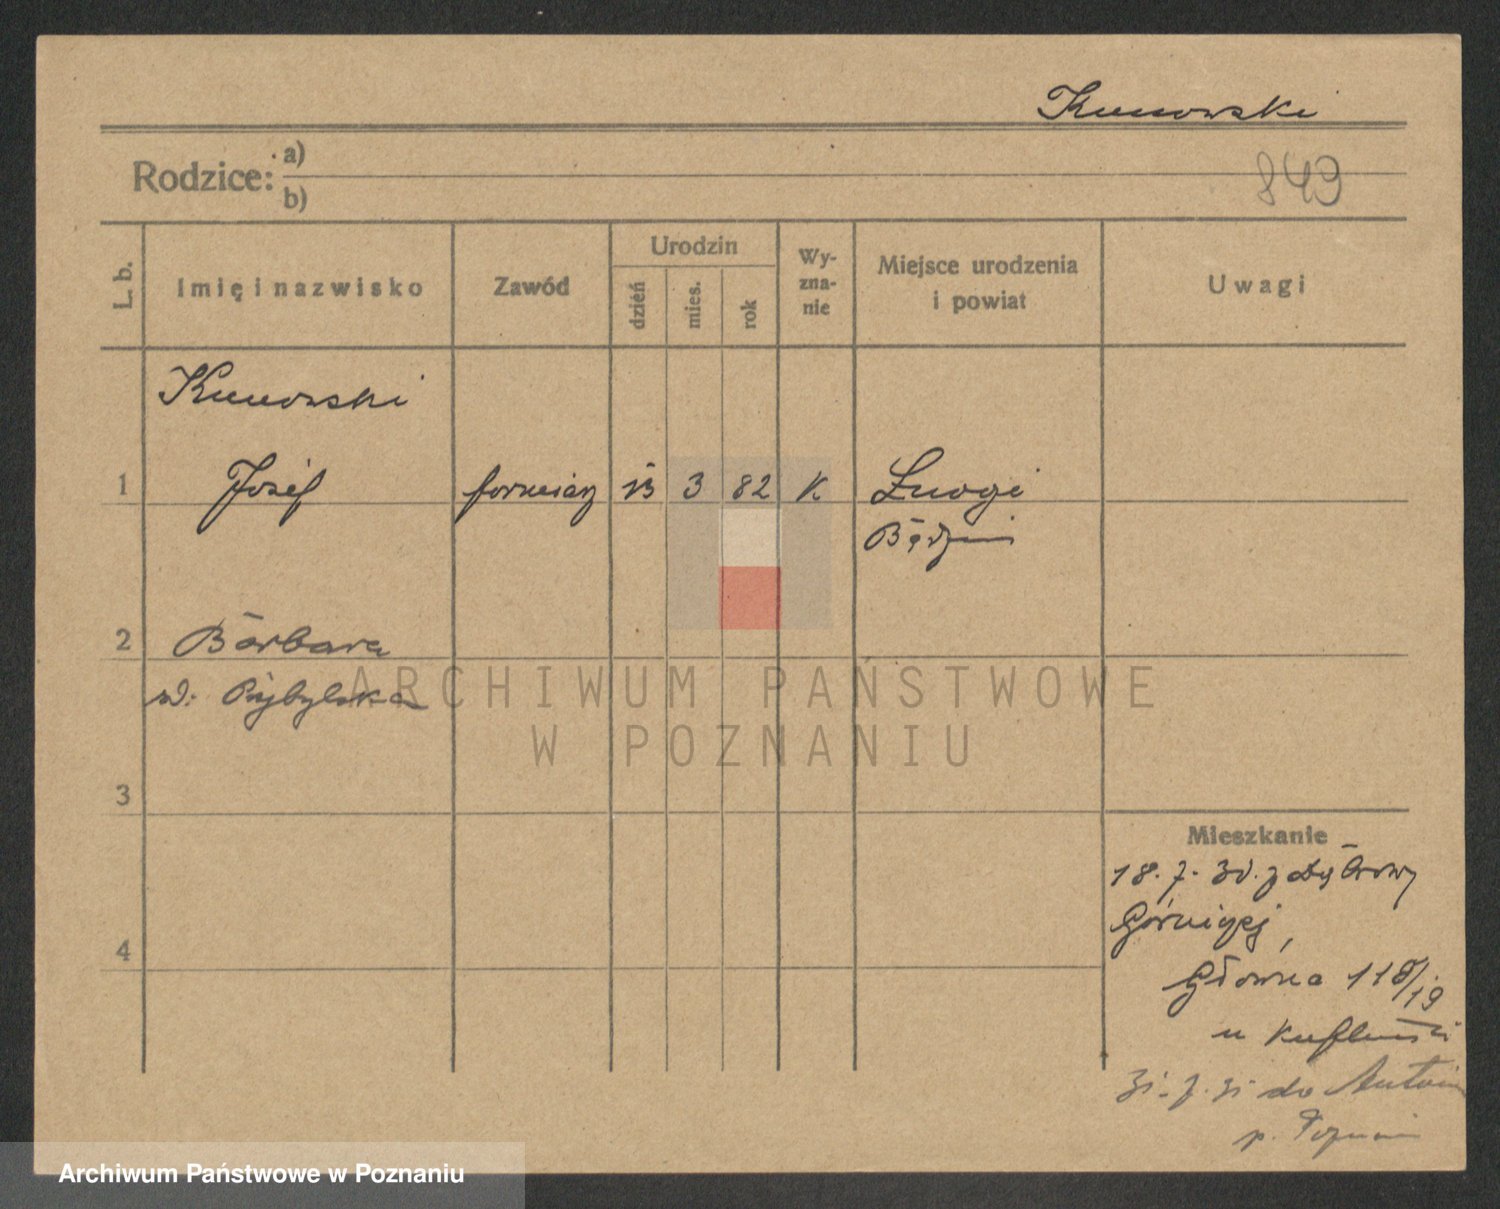 Kunowski
Rodzice: a)
b)
849
L. b.
Imię i nazwisko
Zawód
Urodzin
dzień
mies.
rok
Wy-
zna-
nie
Miejsce urodzenia
i powiat
Uwagi
Kunowski
1 Józef formierz 13 3 82 K Żnogi
Będzin
2 Barbara
Przybylska
ARCHIWUM PAŃSTWOWE
W POZNANIU
3
Mieszkanie
18. 7. 30. z Dąbrowy
Górniczej,
4
Główna 118/19
u
31. 7. 31 do
p. Poznań
Archiwum Państwowe w Poznaniu